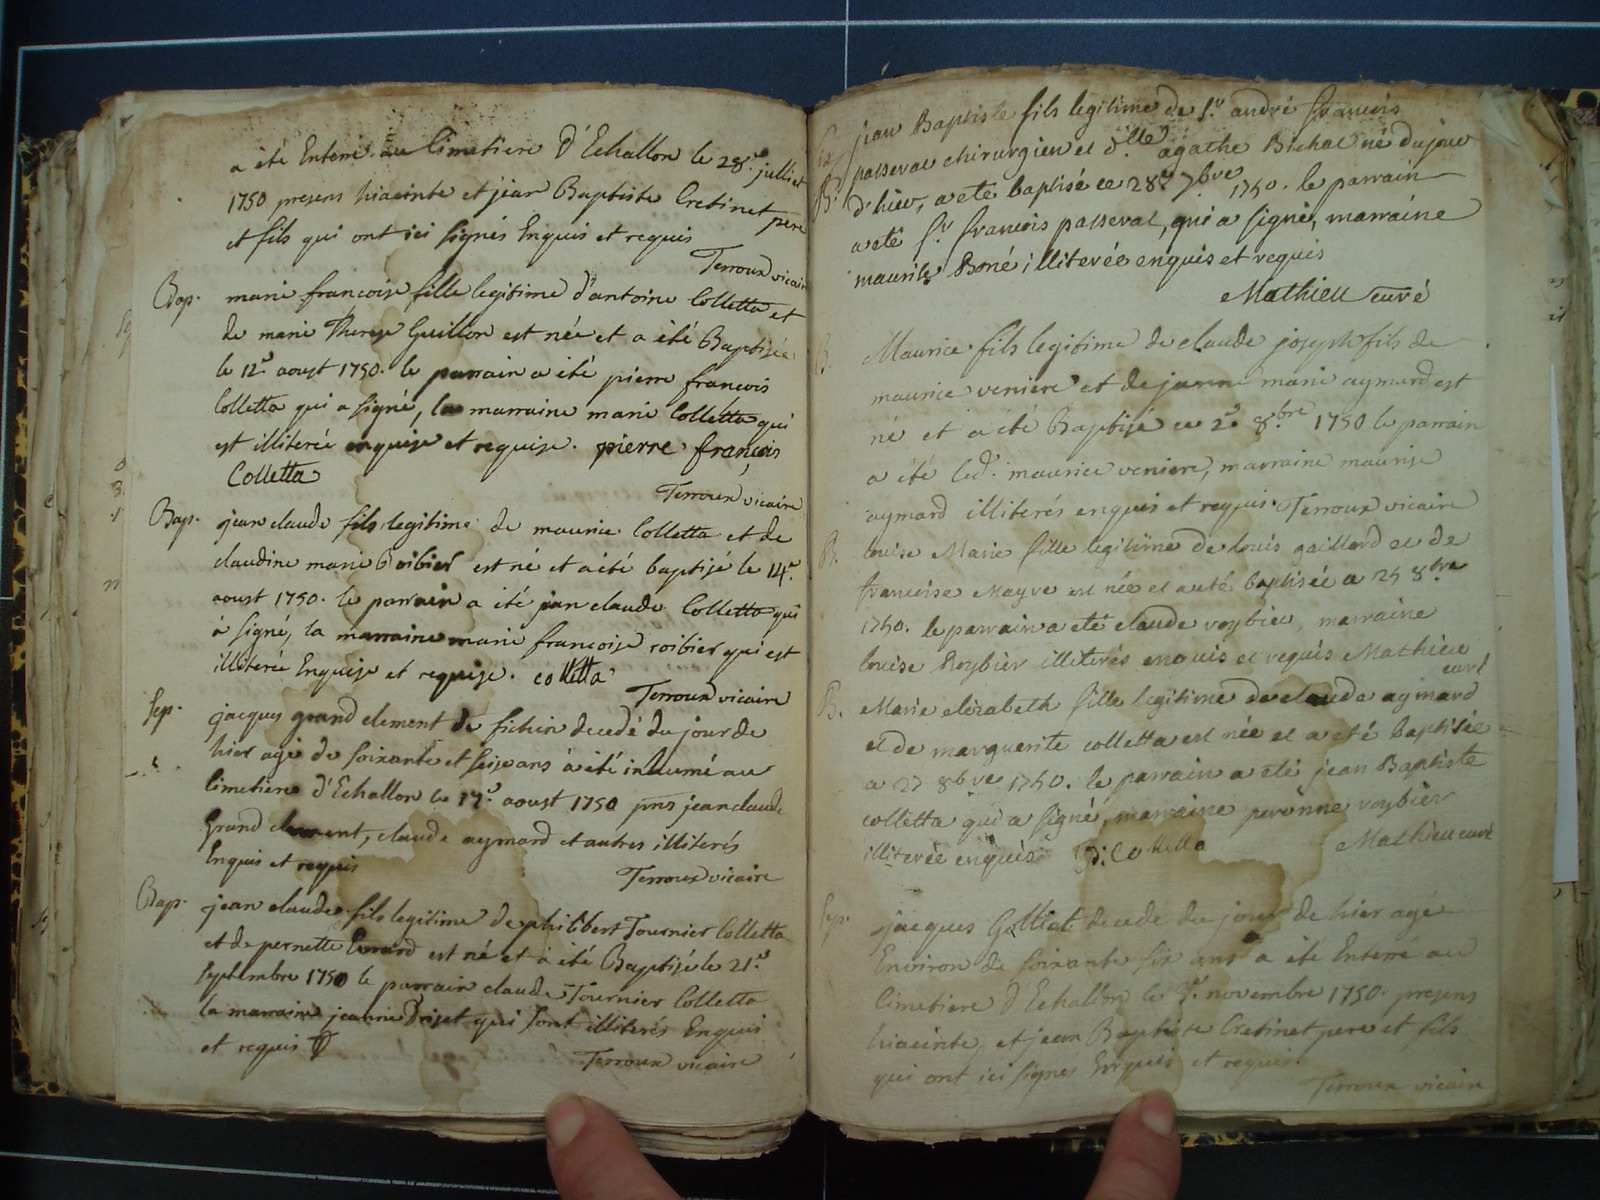 a été Enterré au Cimetiere d'Echallon le 28.e julliet
1750 presens hiacinte et jean Baptiste Cretinet pere
et fils qui ont ici signés Enquis et requis
Terroux vicaire
Bap. marie francoise fille legitime d'antoine Colletta et
de marie Therese Guillon est née et a été Baptisée
le 12.e aoust 1750. le parrain a été pierre francois
Colletta qui a signé, la marraine marie Colletta qui
est illiterée enquise et requise. pierre françois
Colletta
Terroux vicaire
Bap. jean claude fils legitime de maurice Colletta et de
claudine marie Roibier est né et a été baptisé le 14.e
aoust 1750. le parrain a été jean claude Colletta qui
à signé, la marraine marie francoise roibier qui est
illiterée Enquise et requise. colletta
Terroux vicaire
Sep. jacques grand clement de sichin decedé du jour de
hier agé de soixante et seize ans à été inhumé au
Cimetiere d'Echallon le 17.e aoust 1750 pns jean claude
Grand clement, claude aymard et autres illiterés
Enquis et requis
Terroux vicaire
Bap. jean claude fils legitime de philibert Tournier Colletta
et de pernette Evrard est né et à été Baptisé le 21.e
septembre 1750 le parrain claude Tournier Colletta
la marraine jeanne qui sont illiterés Enquis
et requis
Terroux vicaire
jean Baptiste fils legitime de s.r andré francois
passerat chirurgien et d.lle agathe Bichat né du jour
B. d'hier, a eté baptisé ce 28e 7bre 1750. le parrain
a eté s.r francois passerat, qui a signé, marraine
maurise Boné illiterée enquis et requis
Mathieu curé
B. Maurice fils legitime de claude joseph fils de
maurice veniere et de jeanne marie aymard est
né et a été Baptisé ce 2.e 8.bre 1750 le parrain
a été led. maurice veniere, marraine maurise
aymard illiterés enquis et requis. Terroux vicaire
B. louise Marie fille legitime de louis gaillard et de
francoise Mayre est née et a eté baptisée ce 25 8bre
1750. le parrain a eté claude roybier, marraine
louise Roybier illiterés enquis et requis Mathieu
curé
B. Marie elizabeth fille legitime de claude aymard
et de marguerite colletta est née et a eté baptisée
ce 27 8bre 1750. le parrain a eté jean Baptiste
colletta qui a signé, marraine peronne roybier
illiterée enquis Colletta Mathieu curé
Sep. jacques Golliat decedé du jour de hier agé
Environ de soixante six ans a été Enterré au
Cimetiere d'Echallon le novembre 1750. presens
hiacinte et jean Baptiste Cretinet pere et fils
qui ont ici signes Enquis et requis
Terroux vicaire